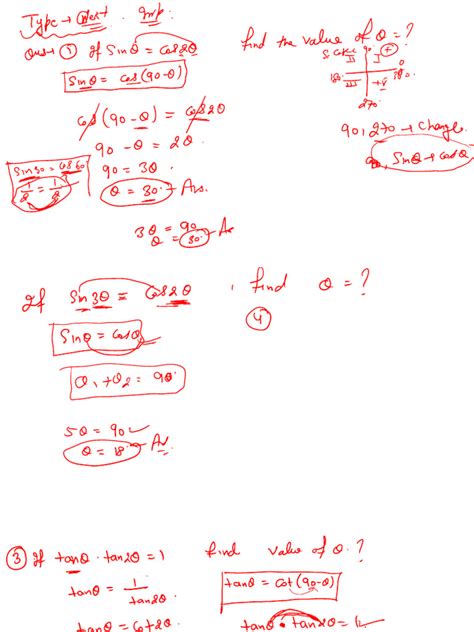 Type → Imp.
Ques → ① If Sinθ = Cos2θ find the value of θ = ?
Sinθ = Cos(90-θ)
Cos(90-θ) = Cos2θ
90-θ = 2θ
90 = 3θ
θ = 30° Ans.
Sin30 = Cos60
1/2 = 1/2
3θ = 90
θ = 30°
90
II
180 III
0
360
270
90, 270 → Change
Sinθ → Cosθ
If Sin3θ = Cos2θ , find θ = ?
④
Sinθ = Cosθ
θ₁+θ₂ = 90°
5θ = 90
θ = 18°
③ If tanθ · tan2θ = 1 find value of θ ?
tanθ = 1/tan2θ
tanθ = Cot(90-θ)
tanθ = Cot2θ
tanθ · tan2θ = 1